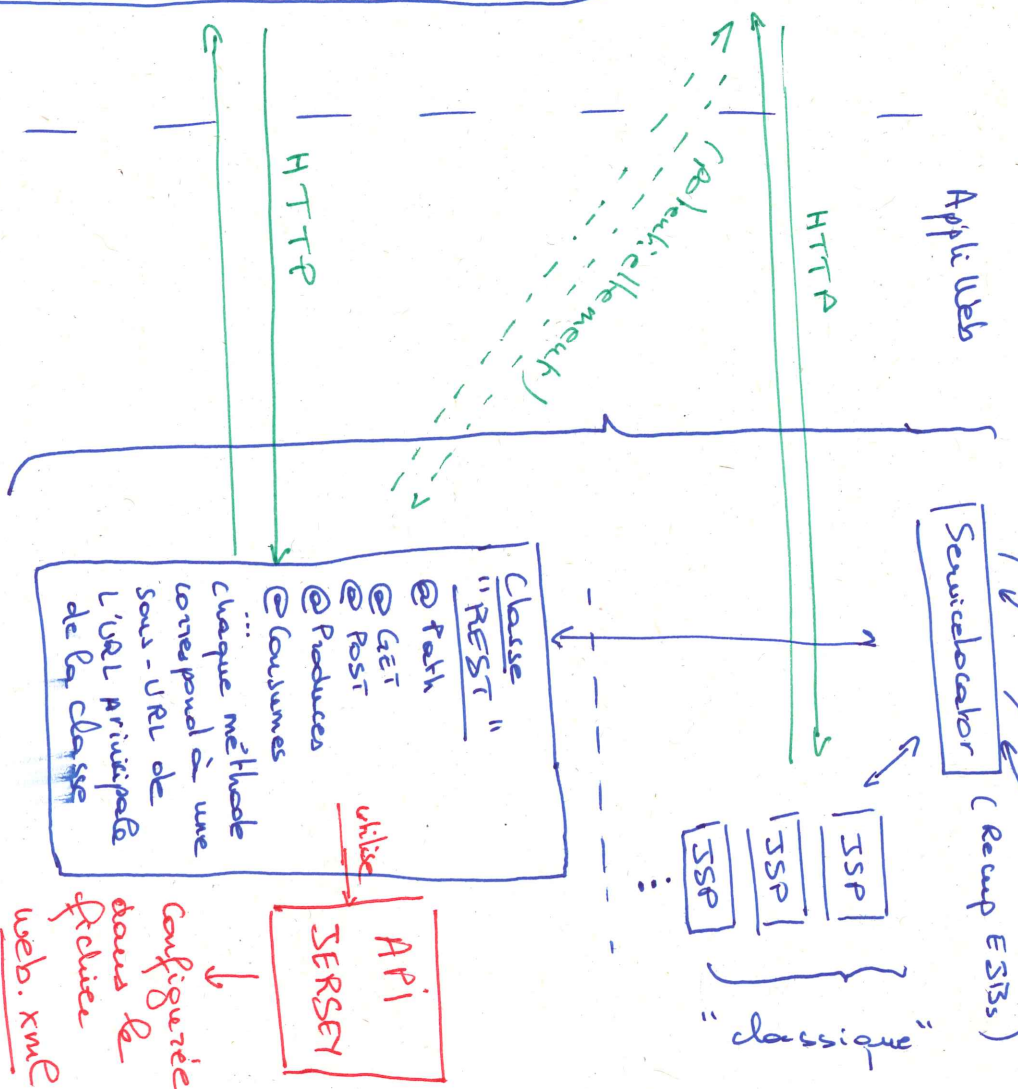 Appli Web
HTTP
(potentiellement)
HTTP
Servicelocator
(Recup EJBs)
JSP
JSP
JSP
...
"classique"
Classe
"REST"
@Path
@GET
@POST
@Produces
@Consumes
...
chaque méthode
correspond à une
sous-URL de
l'URL principale
de la classe
utilise
API
JERSEY
Configurée
dans le
fichier
web.xml